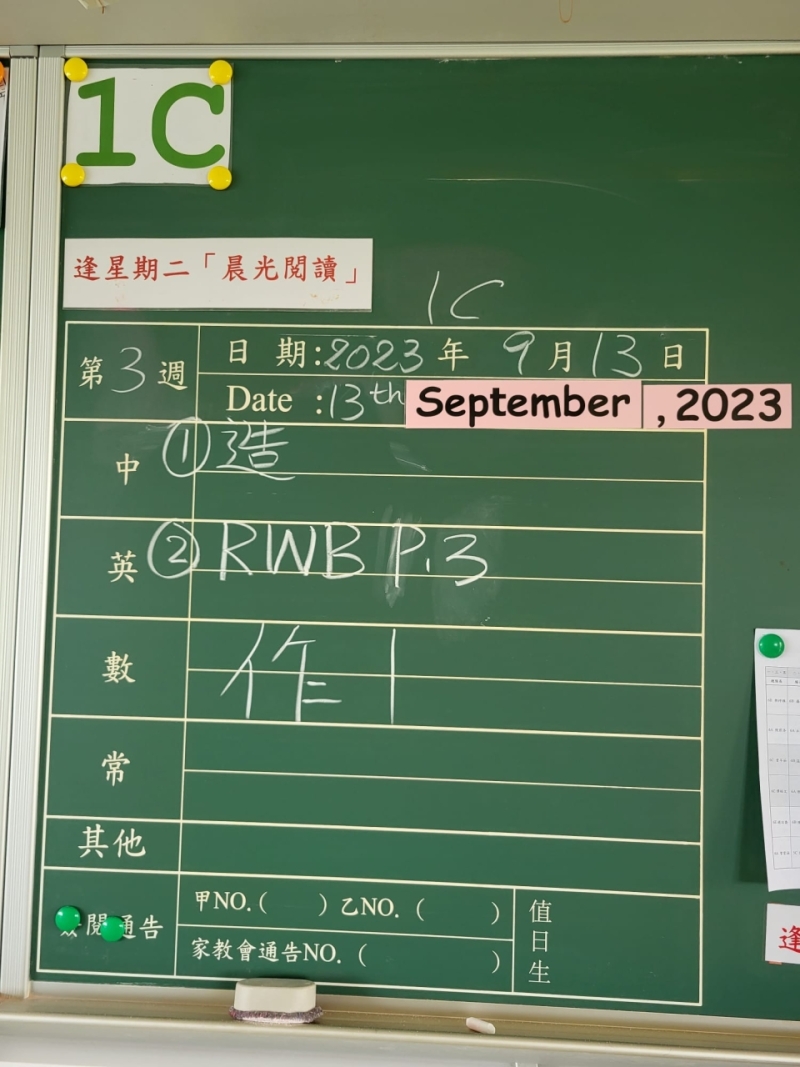 1C
逢星期二「晨光閱讀」
1C
第3週
日期:2023年9月13日
Date :13th September , 2023
中 ①造
英 ② RWB P.3
數 作1
常
其他
閱通告
甲NO.( ) 乙NO. ( )
家教會通告NO. ( )
值日生
逢